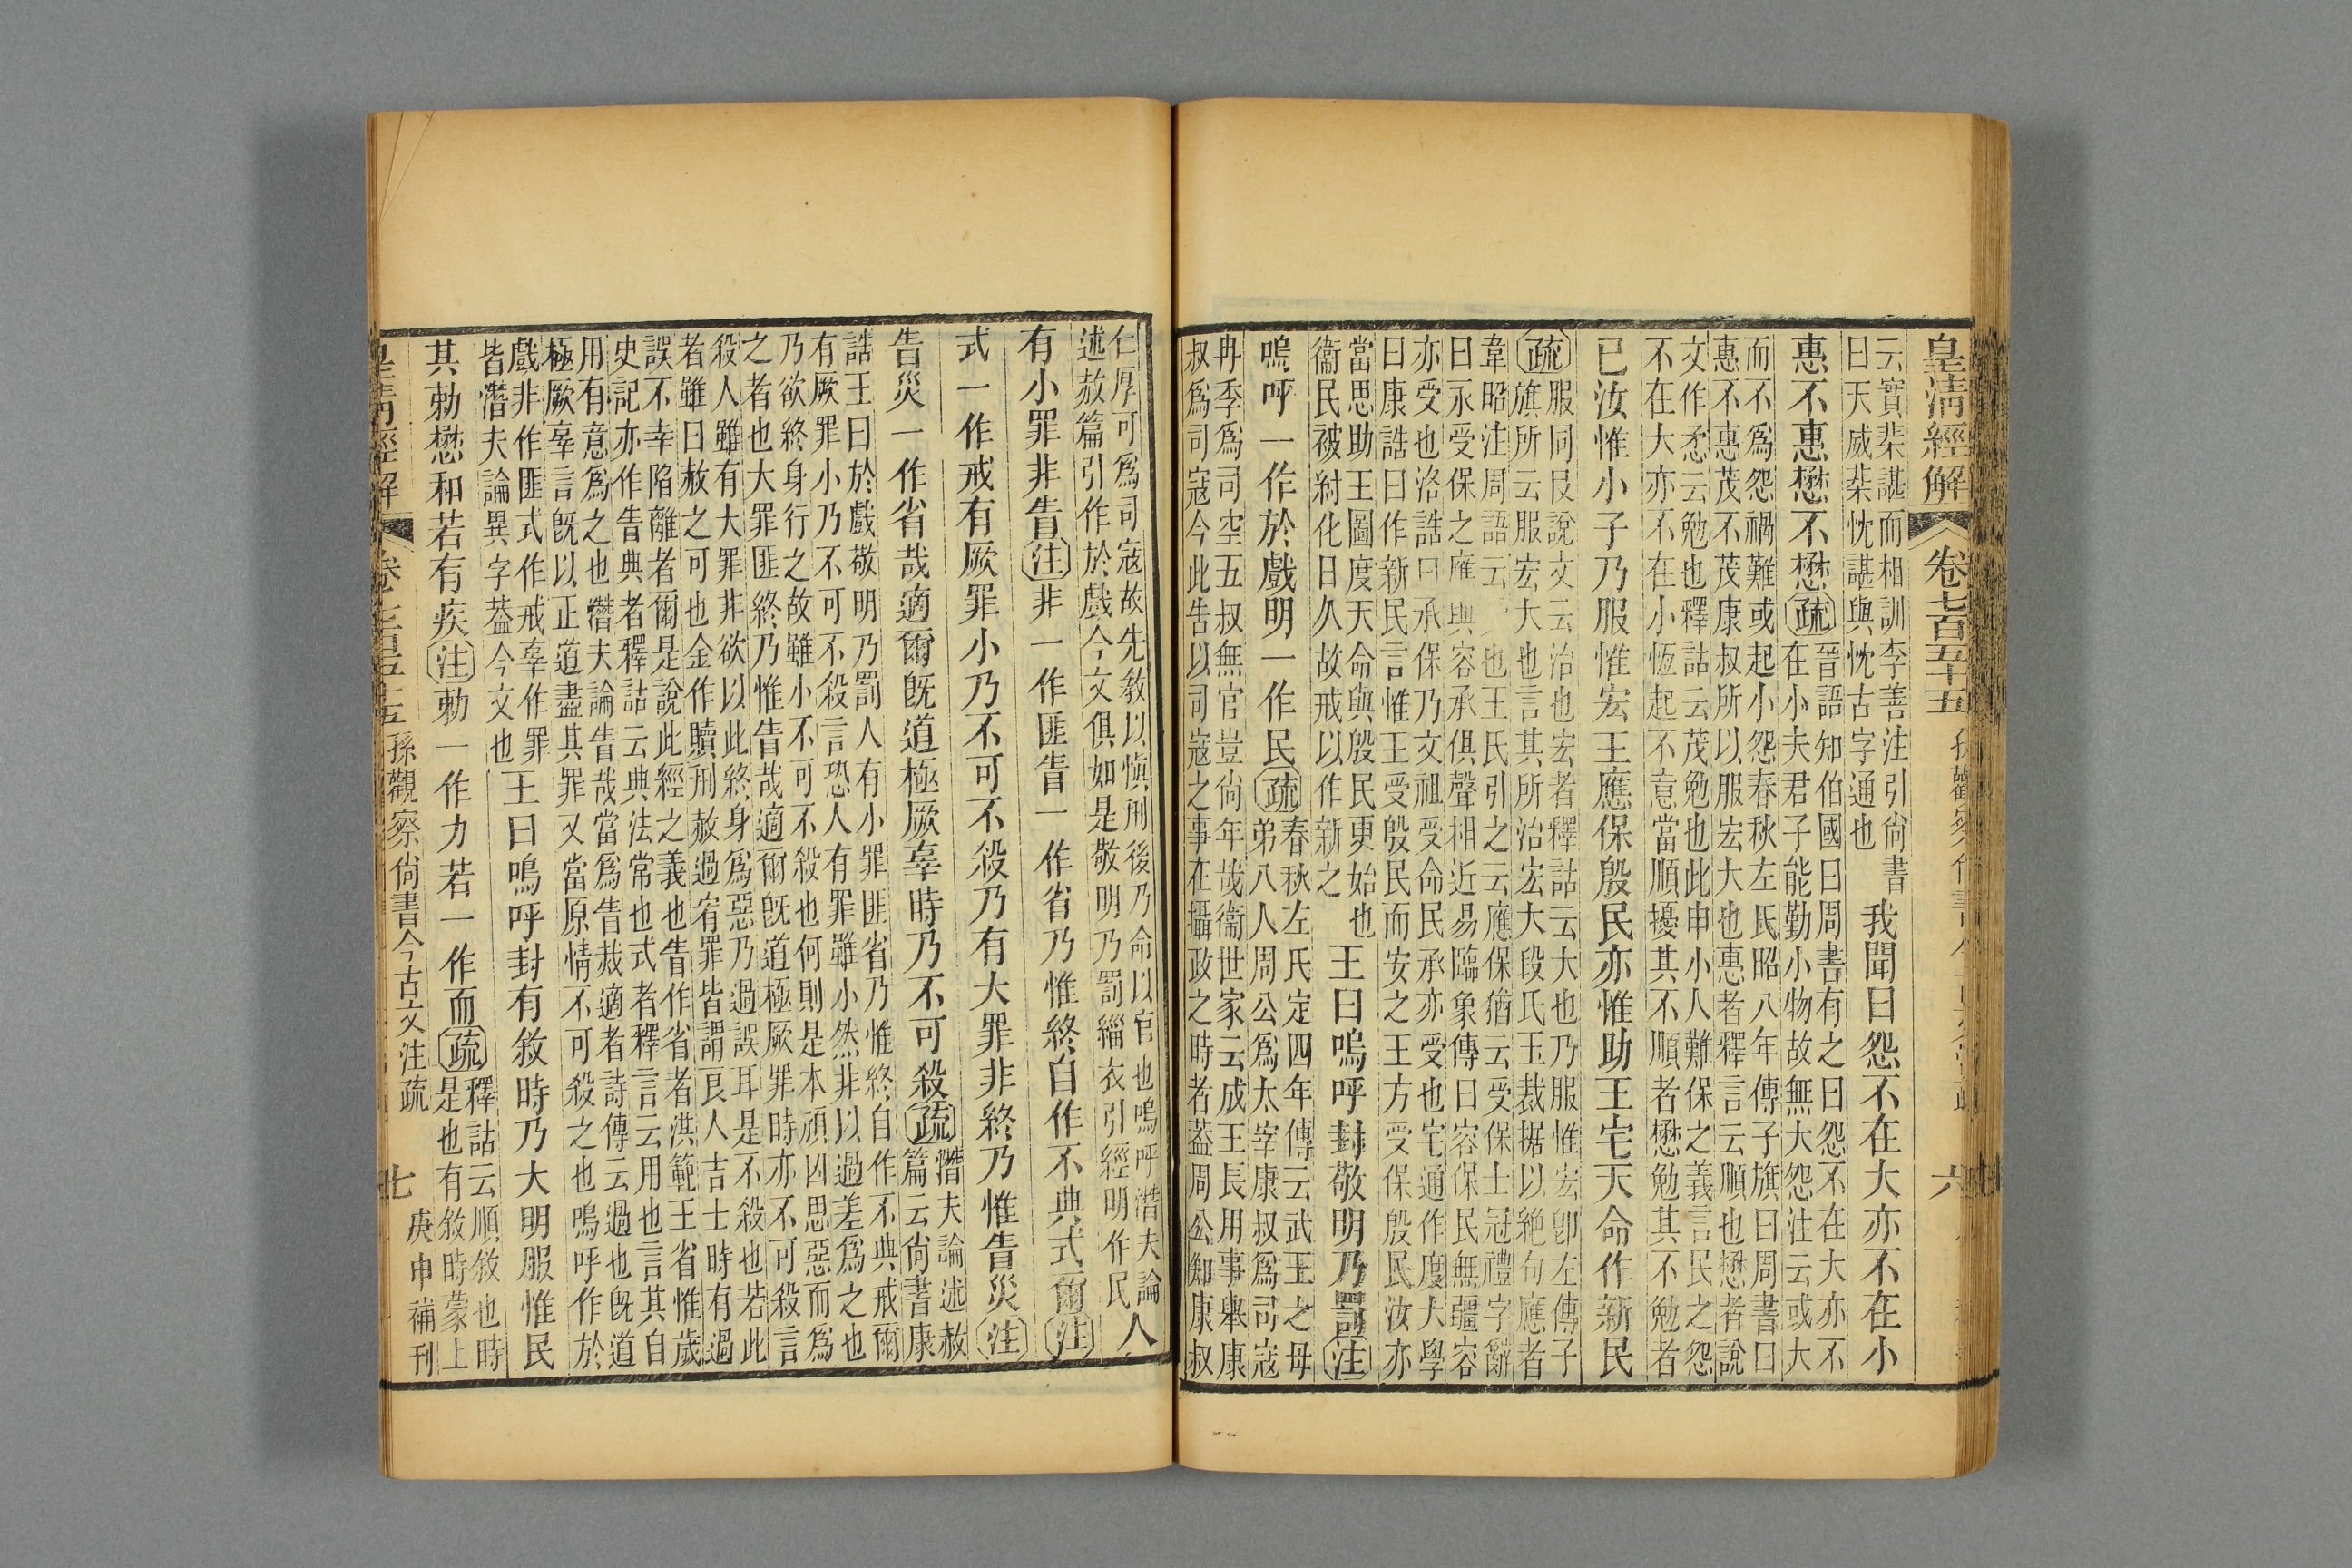 皇清經解 卷七百五十五 六
云實棐諶而相訓李善注引尚書
曰天威棐忱諶與忱古字通也
我聞曰怨不在大亦不在小
惠不惠懋不懋疏
晉語知伯國曰周書有之曰怨不在大亦不
在小夫君子能勤小物故無大怨注云或大
而不爲怨禍難或起小怨春秋左氏昭八年傳子旗曰周書曰
惠不惠茂不茂康叔所以服宏大也惠者釋言云順也懋者說
文作忞云勉也釋詁云茂勉也此申小人難保之義言民之怨
不在大亦不在小恆起不意當順擾其不順者懋勉其不勉者
已汝惟小子乃服惟宏王應保殷民亦惟助王宅天命作新民
疏
服同𠬝說文云治也宏者釋詁云大也乃服惟宏卽左傳子
旗所云服宏大也言其所治宏大段氏玉裁据以絕句應者
韋昭注周語云也王氏引之云應保猶云受保士冠禮字辭
曰永受保之應與容承俱聲相近易臨象傳曰容保民無疆容
亦受也洛誥曰承保乃文祖受命民承亦受也宅通作度大學
曰康誥曰作新民言惟王受殷民而安之王方受保殷民汝亦
當思助王圖度天命與殷民更始也
衞民被紂化日久故戒以作新之
王曰嗚呼封敬明乃罰注
嗚呼一作於戲明一作民疏
春秋左氏定四年傳云武王之母
弟八人周公爲太宰康叔爲司寇
冉季爲司空五叔無官豈尚年哉衞世家云成王長用事舉康
叔爲司寇今此告以司寇之事在攝政之時者葢周公知康叔
仁厚可爲司寇故先敎以愼刑後乃命以官也嗚呼潛夫論
述赦篇引作於戲今文俱如是敬明乃罰緇衣引經明作民
人
有小罪非眚注非一作匪眚一作省乃惟終自作不典式爾注
式一作戒有厥罪小乃不可不殺乃有大罪非終乃惟眚災注
眚災一作省哉適爾旣道極厥辜時乃不可殺疏
潛夫論述赦
篇云尚書康
誥王曰於戲敬明乃罰人有小罪匪省乃惟終自作不典戒爾
有厥罪小乃不可不殺言恐人有罪雖小然非以過差爲之也
乃欲終身行之故雖小不可不殺也何則是本頑凶思惡而爲
之者也大罪匪終乃惟眚哉適爾旣道極厥罪時亦不可殺言
殺人雖有大罪非欲以此終身爲惡乃過誤耳是不殺也若此
者雖曰赦之可也金作贖刑赦過宥罪皆謂良人吉士時有過
誤不幸陷離者爾是說此經之義也眚作省者洪範王省惟歲
史記亦作眚典者釋詁云典法常也式者釋言云用也言其自
用有意爲之也潛夫論眚哉當爲眚烖適者詩傳云過也旣道
極厥辜言旣以正道盡其罪又當原情不可殺之也嗚呼作於
戲非作匪式作戒辜作罪
皆潛夫論異字葢今文也
王曰嗚呼封有敘時乃大明服惟民
其勑懋和若有疾注勑一作力若一作而疏
釋詁云順敘也時
是也有敘時蒙上
皇清經解 卷七百五十五 孫觀察尚書今古文注疏 七 庚申補刊